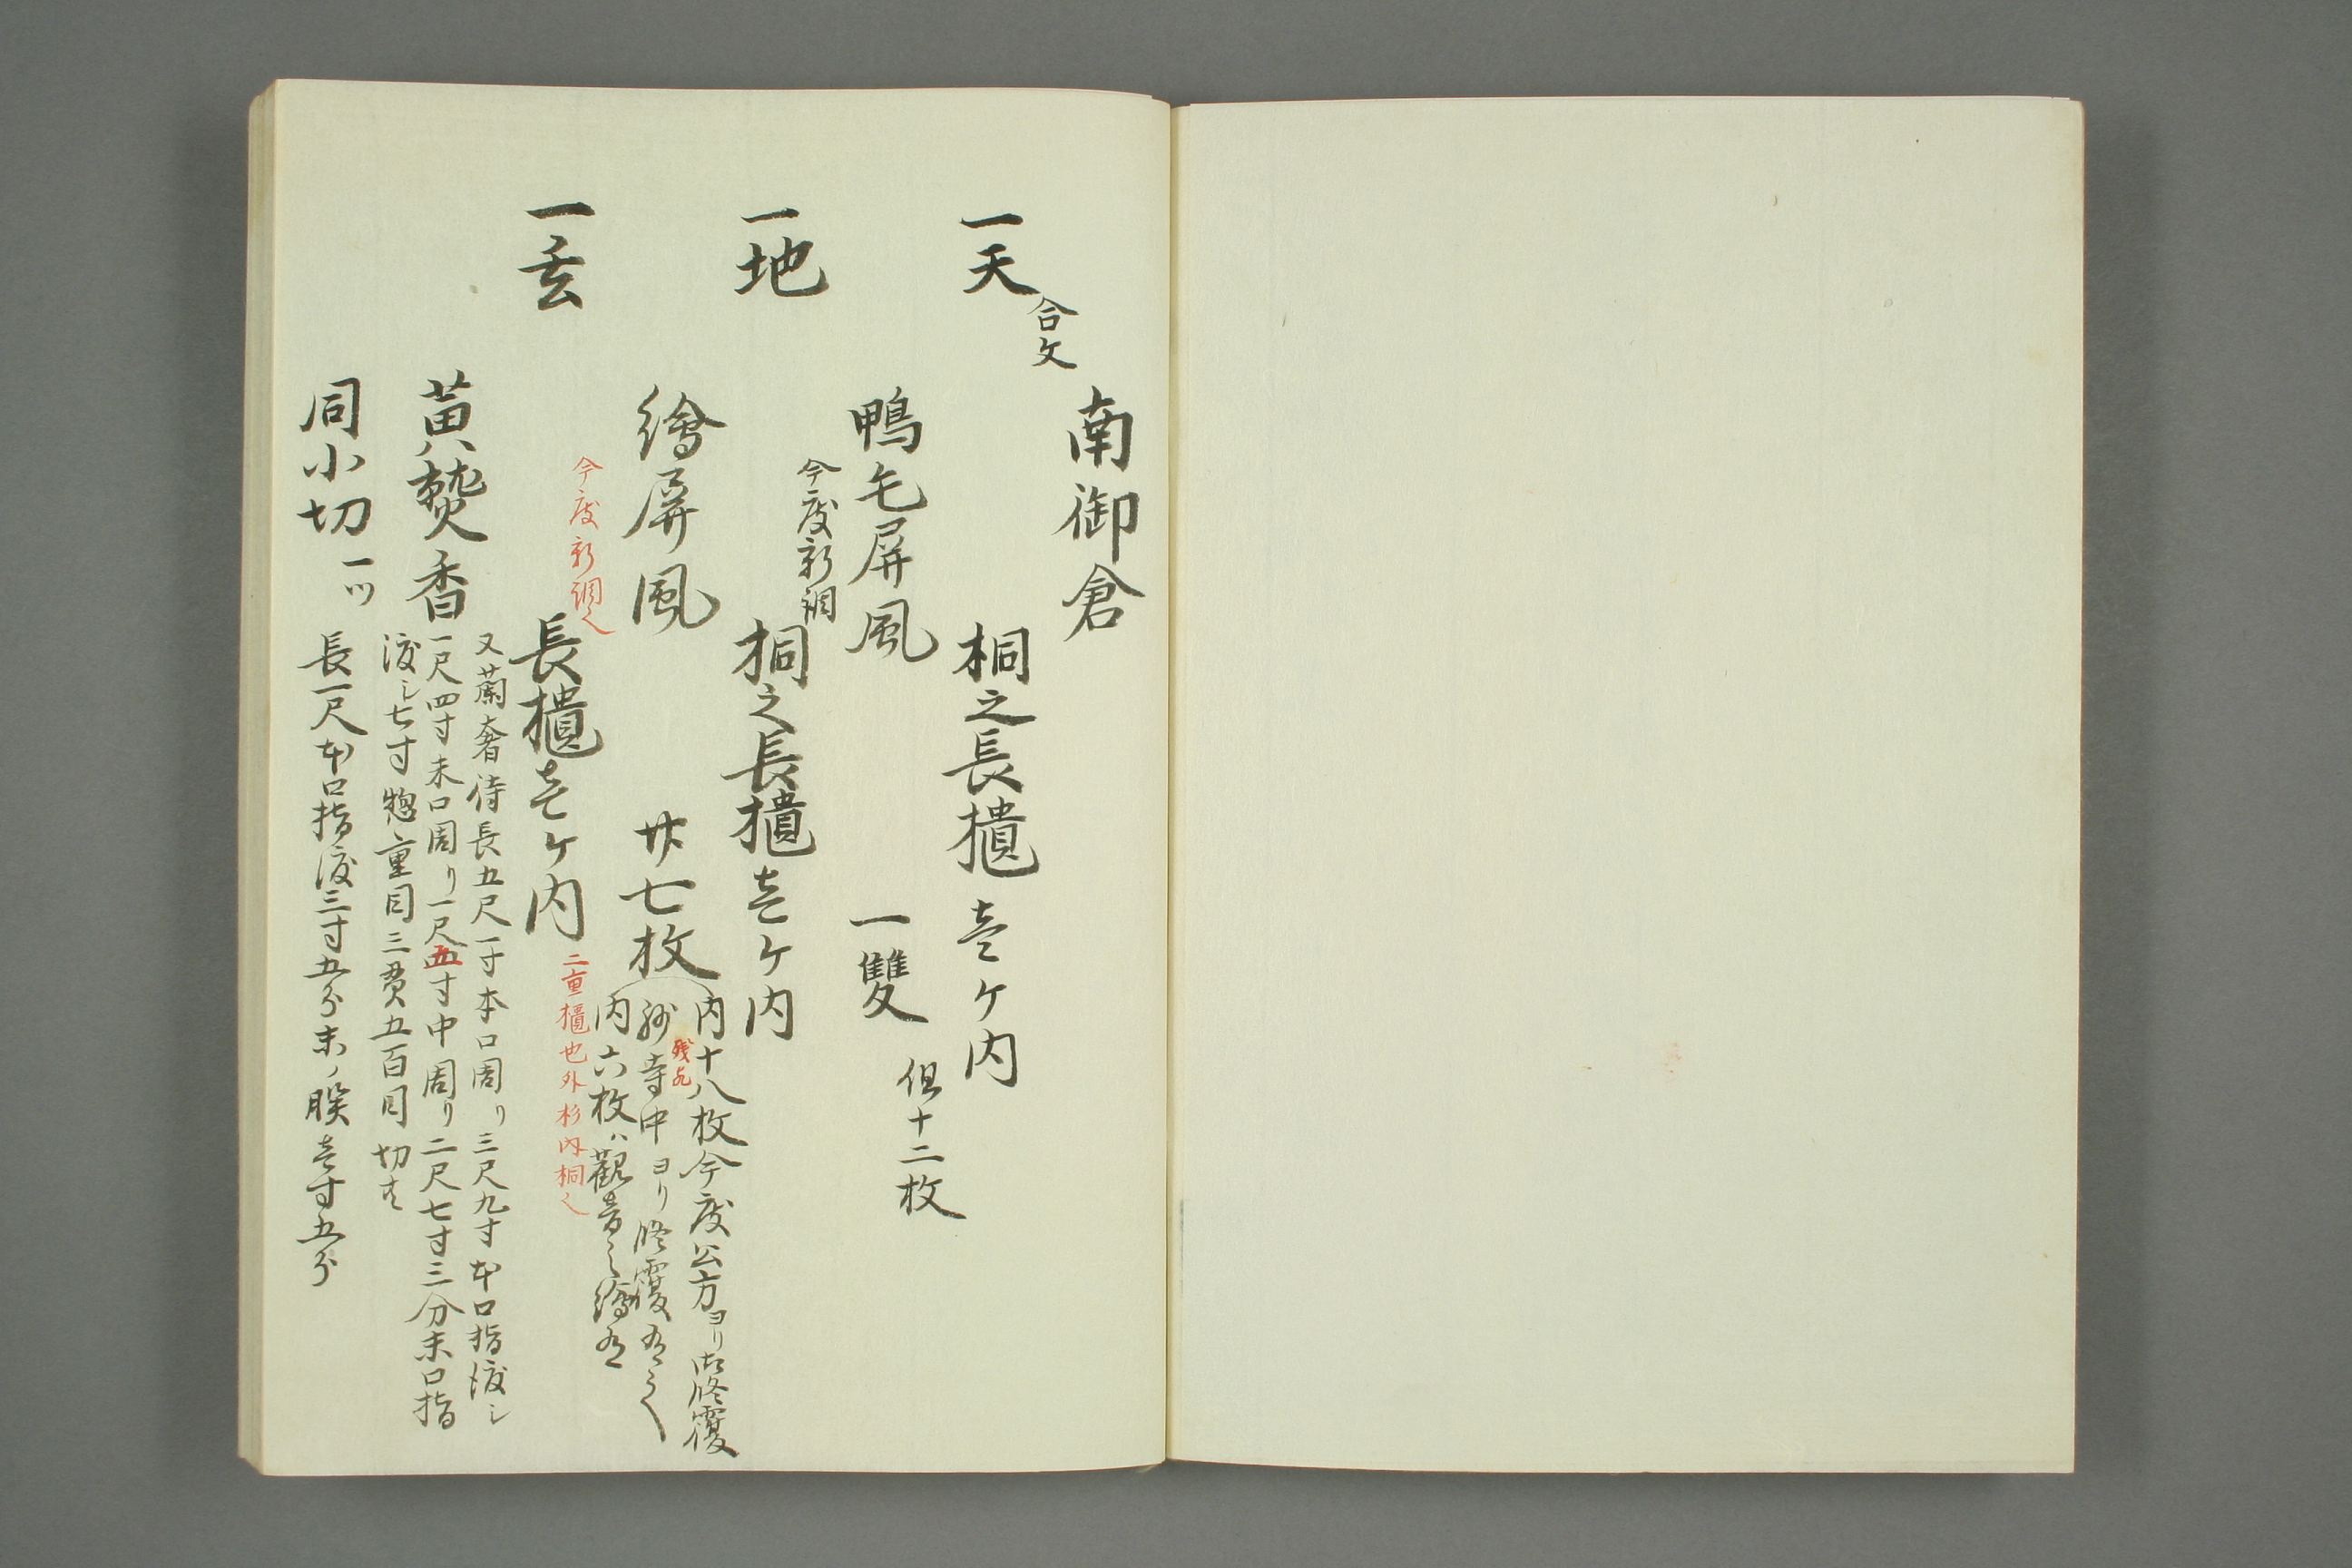 南御倉
合文
一天
桐之長櫃壱ケ内
鴨毛屏風
一雙
但十二枚
今度新調
一地
桐之長櫃壱ケ内
繪屏風
廿七枚
内十八枚今度公方ヨリ御修覆
残九
寺中ヨリ修覆有
内六枚ハ觀音之繪有
今度新調
一玄
長櫃壱ケ内
二重櫃也外杉内桐
黄熟香
又蘭奢待長五尺一寸本口周リ三尺九寸本口指渡シ
一尺四寸末口周リ一尺五寸中周リ二尺七寸三分末口指
渡シ七寸惣重目三貫五百目
同小切
一ツ
長一尺本口指渡三寸五分末ノ壱寸五分